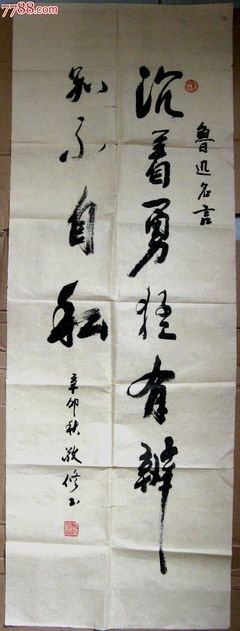 7788.com
魯迅名言
沉着勇猛有辨
别不自私
辛卯秋敬修书